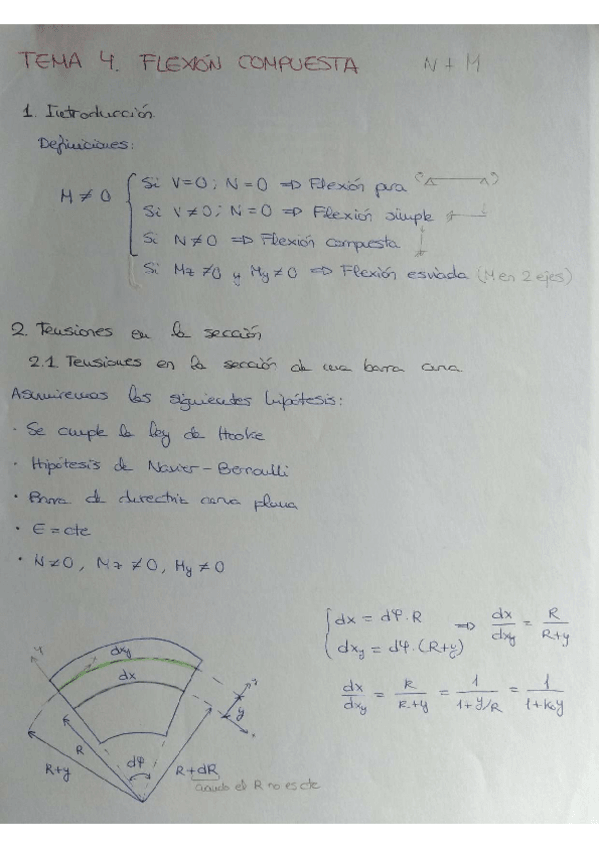 TEMA 4. FLEXIÓN COMPUESTA N + M
1. Introducción.
Definiciones:
M ≠ 0
Si V=0; N=0 ⇒ Flexión pura
Si V≠0; N=0 ⇒ Flexión simple
Si N≠0 ⇒ Flexión compuesta
Si Mz≠0 y My≠0 ⇒ Flexión esviada (M en 2 ejes)
2. Tensiones en la sección
2.1. Tensiones en la sección de una barra curva.
Asumiremos las siguientes hipótesis:
· Se cumple la ley de Hooke
· Hipótesis de Navier-Bernoulli
· Barra de directriz curva plana
· E = cte
· N≠0, Mz≠0, My≠0
dx = dφ·R ⇒ dx/dxy = R/R+y
dxy = dφ·(R+y)
dx/dxy = R/R+y = 1/1+y/R = 1/1+k₀y
y
dxy
dx
y
R
dφ
R+y
R+dR
cuando el R no es cte